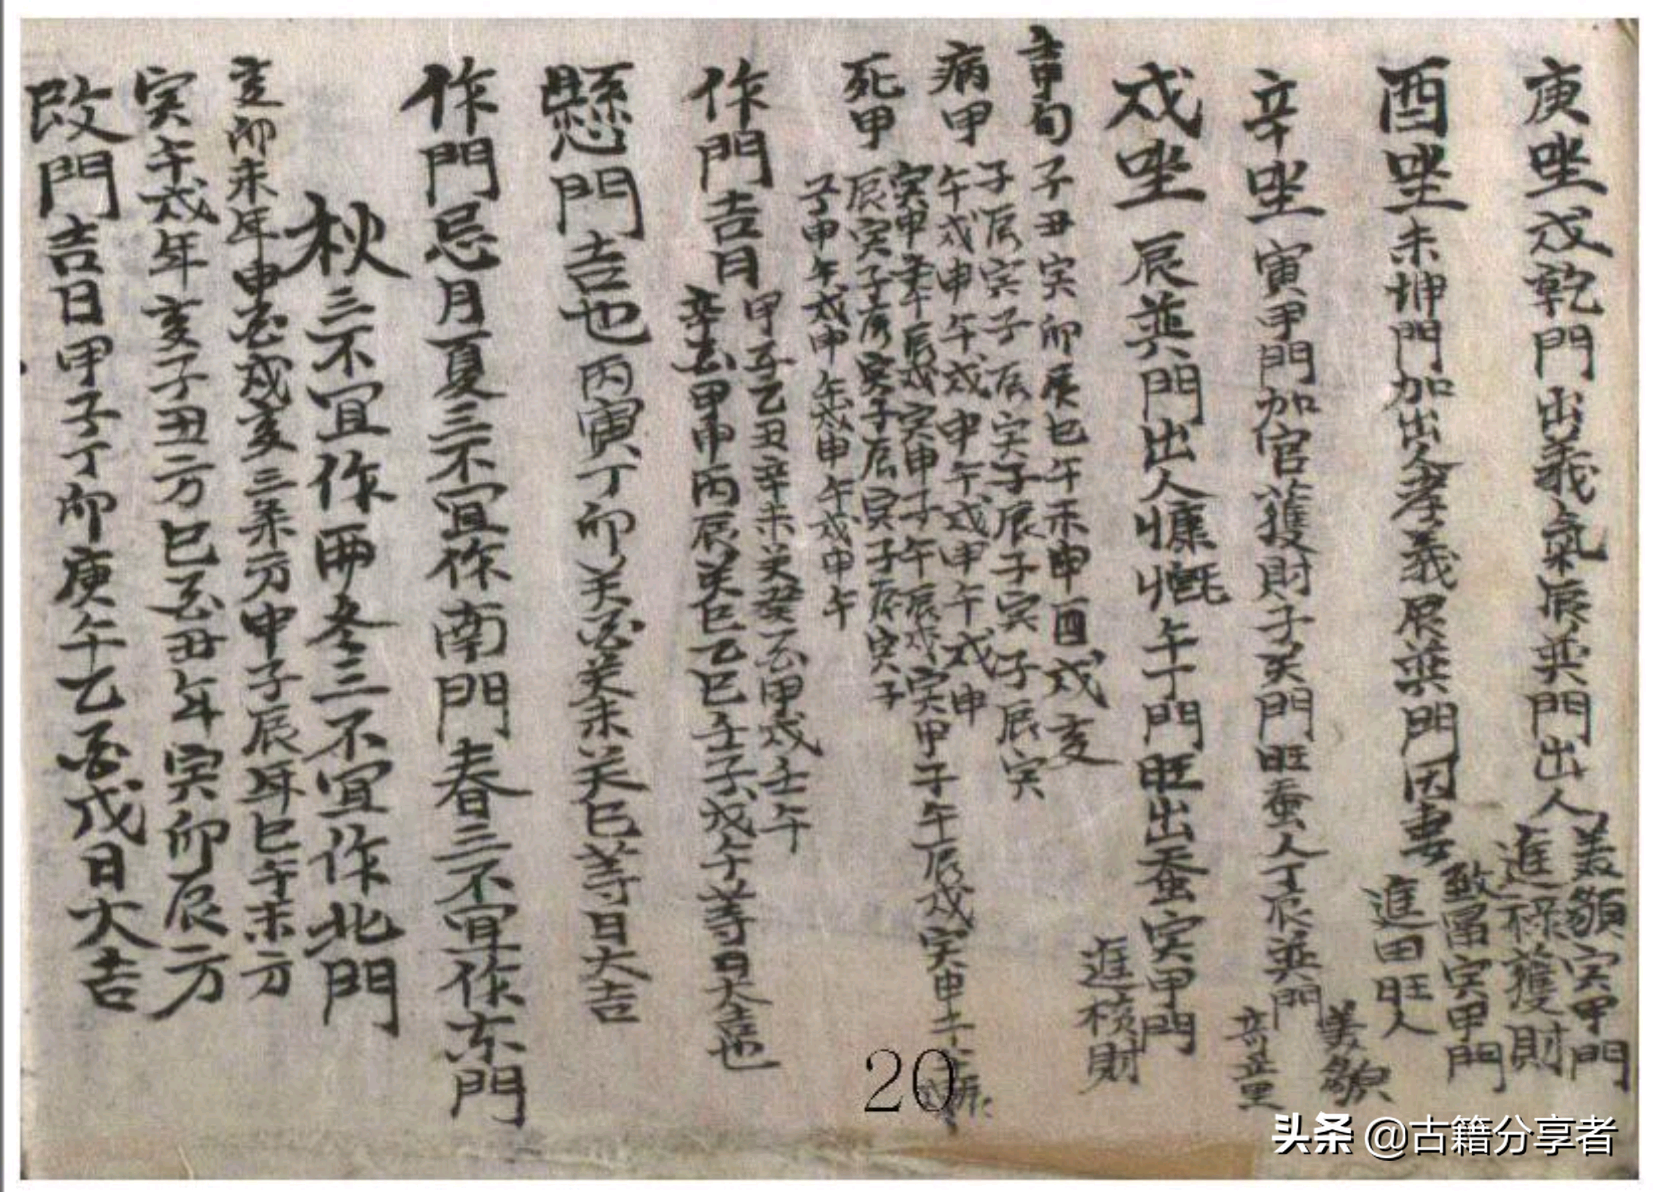 庚坐戍乾門出義氣辰巽門出人美貌寅甲門
進祿獲財
酉坐未坤門加出人孝義辰巽門因妻致富寅甲門
進田旺人
辛坐寅甲門加官獲財子癸門旺蚕人丁辰巽門美貌
奇益黑
戍坐辰巽門出人慷慨午丁門旺出蚕寅甲門
進横財
章旬子丑寅卯辰巳午未申酉戍亥
病甲
子辰寅子辰寅子辰子寅子辰寅
午戍申午戍申午戍申午戍申
死甲
辰寅子辰寅子辰寅子辰寅子
子申午戍申午戍申午戍申午
作門吉月甲子乙丑辛未癸
甲戍壬午
甲申丙辰癸巳乙巳壬子戊午等日大吉也
懸門吉也丙寅丁卯癸酉癸未癸巳等日大吉
作門忌月夏三不宜作南門春三不宜作东門
秋三不宜作西冬三不宜作北門
亥卯未年申酉戍亥三柔方申子辰年巳午未方
寅午戍年亥子丑方巳酉丑年寅卯辰方
改門吉日甲子丁卯庚午乙酉戊日大吉
20
头条 @古籍分享者